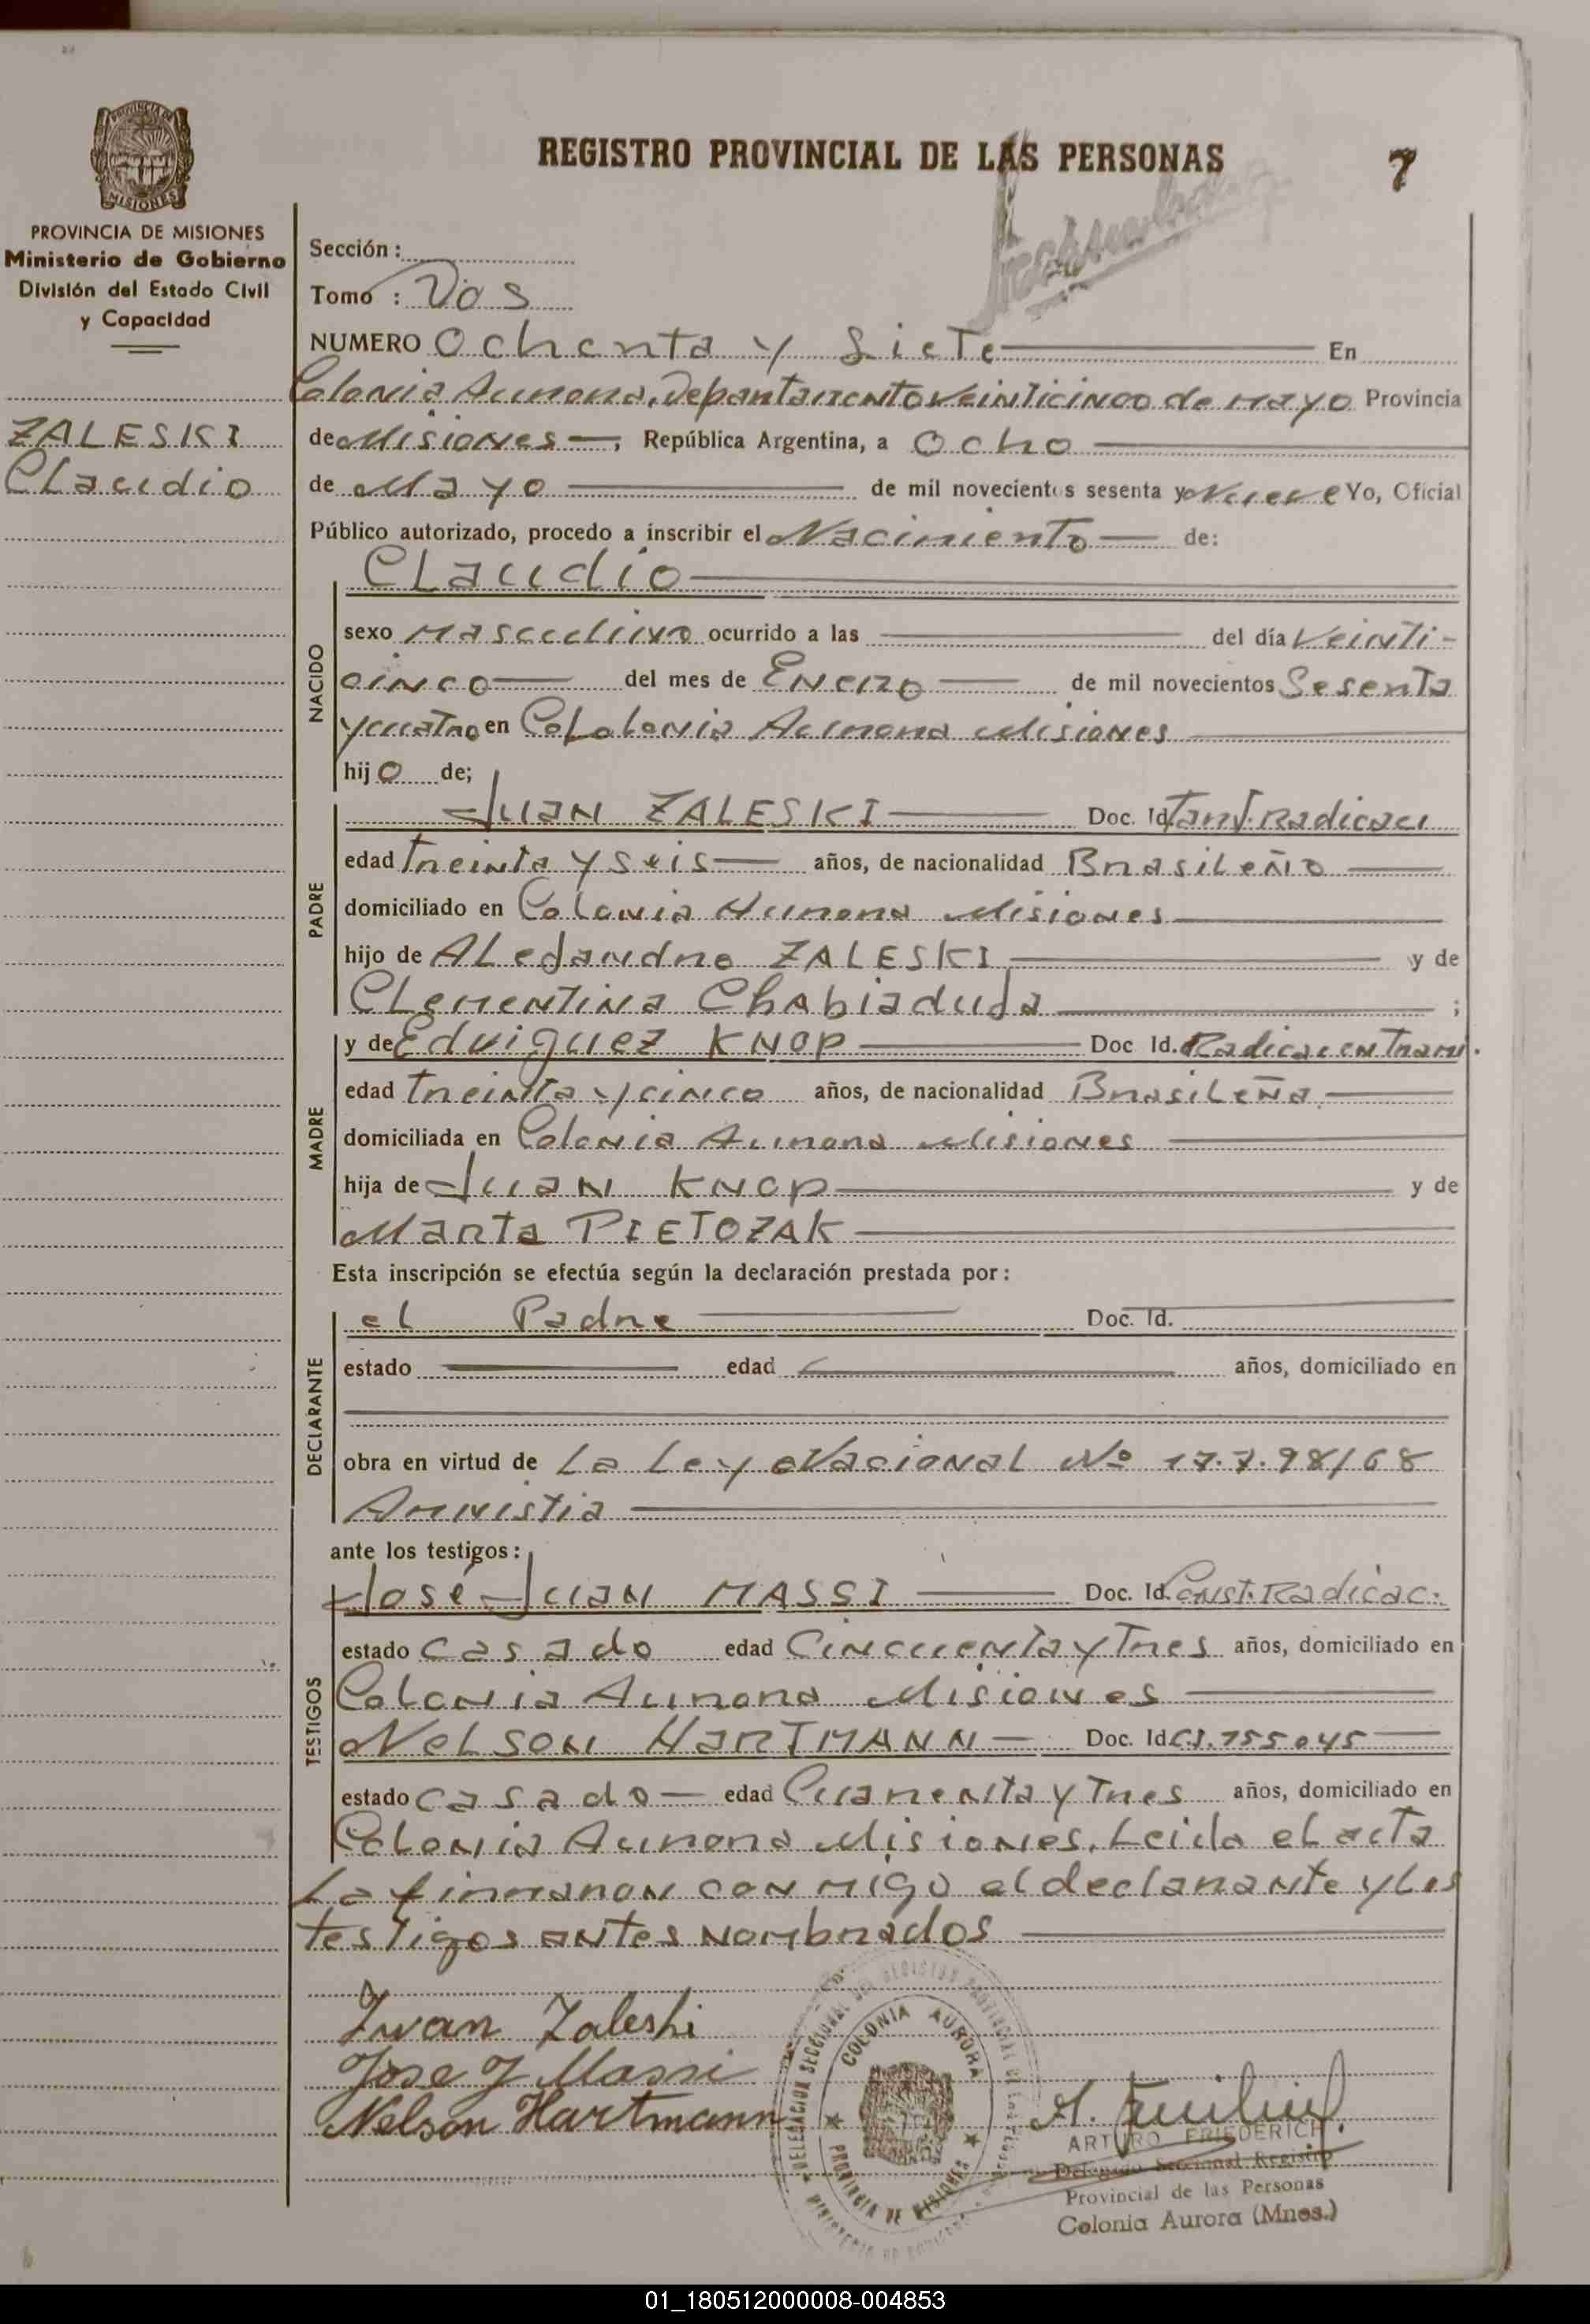 REGISTRO PROVINCIAL DE LAS PERSONAS
7
MISIONES
PROVINCIA DE MISIONES
Ministerio de Gobierno
División del Estado Civil
y Capacidad
ZALESKI
Claudio
Sección :
Tomo : Dos
NUMERO Ochenta y Siete En
Colonia Aurora, Departamento Veinticinco de Mayo Provincia
de Misiones, República Argentina, a Ocho
de Mayo de mil novecientos sesenta y Nueve Yo, Oficial
Público autorizado, procedo a inscribir el Nacimiento de:
Claudio
NACIDO
sexo Masculino ocurrido a las del día Veinti-
cinco del mes de Enero de mil novecientos Sesenta
y cuatro en Cololonia Aurora Misiones
hijo de;
PADRE
Juan ZALESKI Doc. Id Tam. Radicaci
edad Treinta y Seis años, de nacionalidad Brasileño
domiciliado en Colonia Aurora Misiones
hijo de ALeJandro ZALESKI y de
Clementina Chabiaduda ;
MADRE
y de Eduiguez KNOP Doc Id. Radicac en Tram.
edad Treinta y cinco años, de nacionalidad Brasileña
domiciliada en Colonia Aurora Misiones
hija de Juan KNOP y de
Marta PIETOZAK
Esta inscripción se efectúa según la declaración prestada por :
DECLARANTE
el Padre Doc. Id.
estado edad años, domiciliado en
obra en virtud de La Ley Nacional Nº 17.7.98/68
Amnistia
ante los testigos :
TESTIGOS
José Juan MASSI Doc. Id. Const. Radicac.
estado Casado edad Cincuenta y Tres años, domiciliado en
Colonia Aurora Misiones
Nelson HARTMANN Doc. Id C.I. 155045
estado Casado edad Cuarenta y Tres años, domiciliado en
Colonia Aurora Misiones. Leida el acta
La firmaron con migo el declarante y los
testigos antes nombrados
Iwan Zaleski
Jose J Massi
Nelson Hartmann
COLONIA AURORA
PROVINCIA DE MISIONES
ARTURO FRIEDERICH
Delegado Seccional Registro
Provincial de las Personas
Colonia Aurora (Mnes.)
01_180512000008-004853